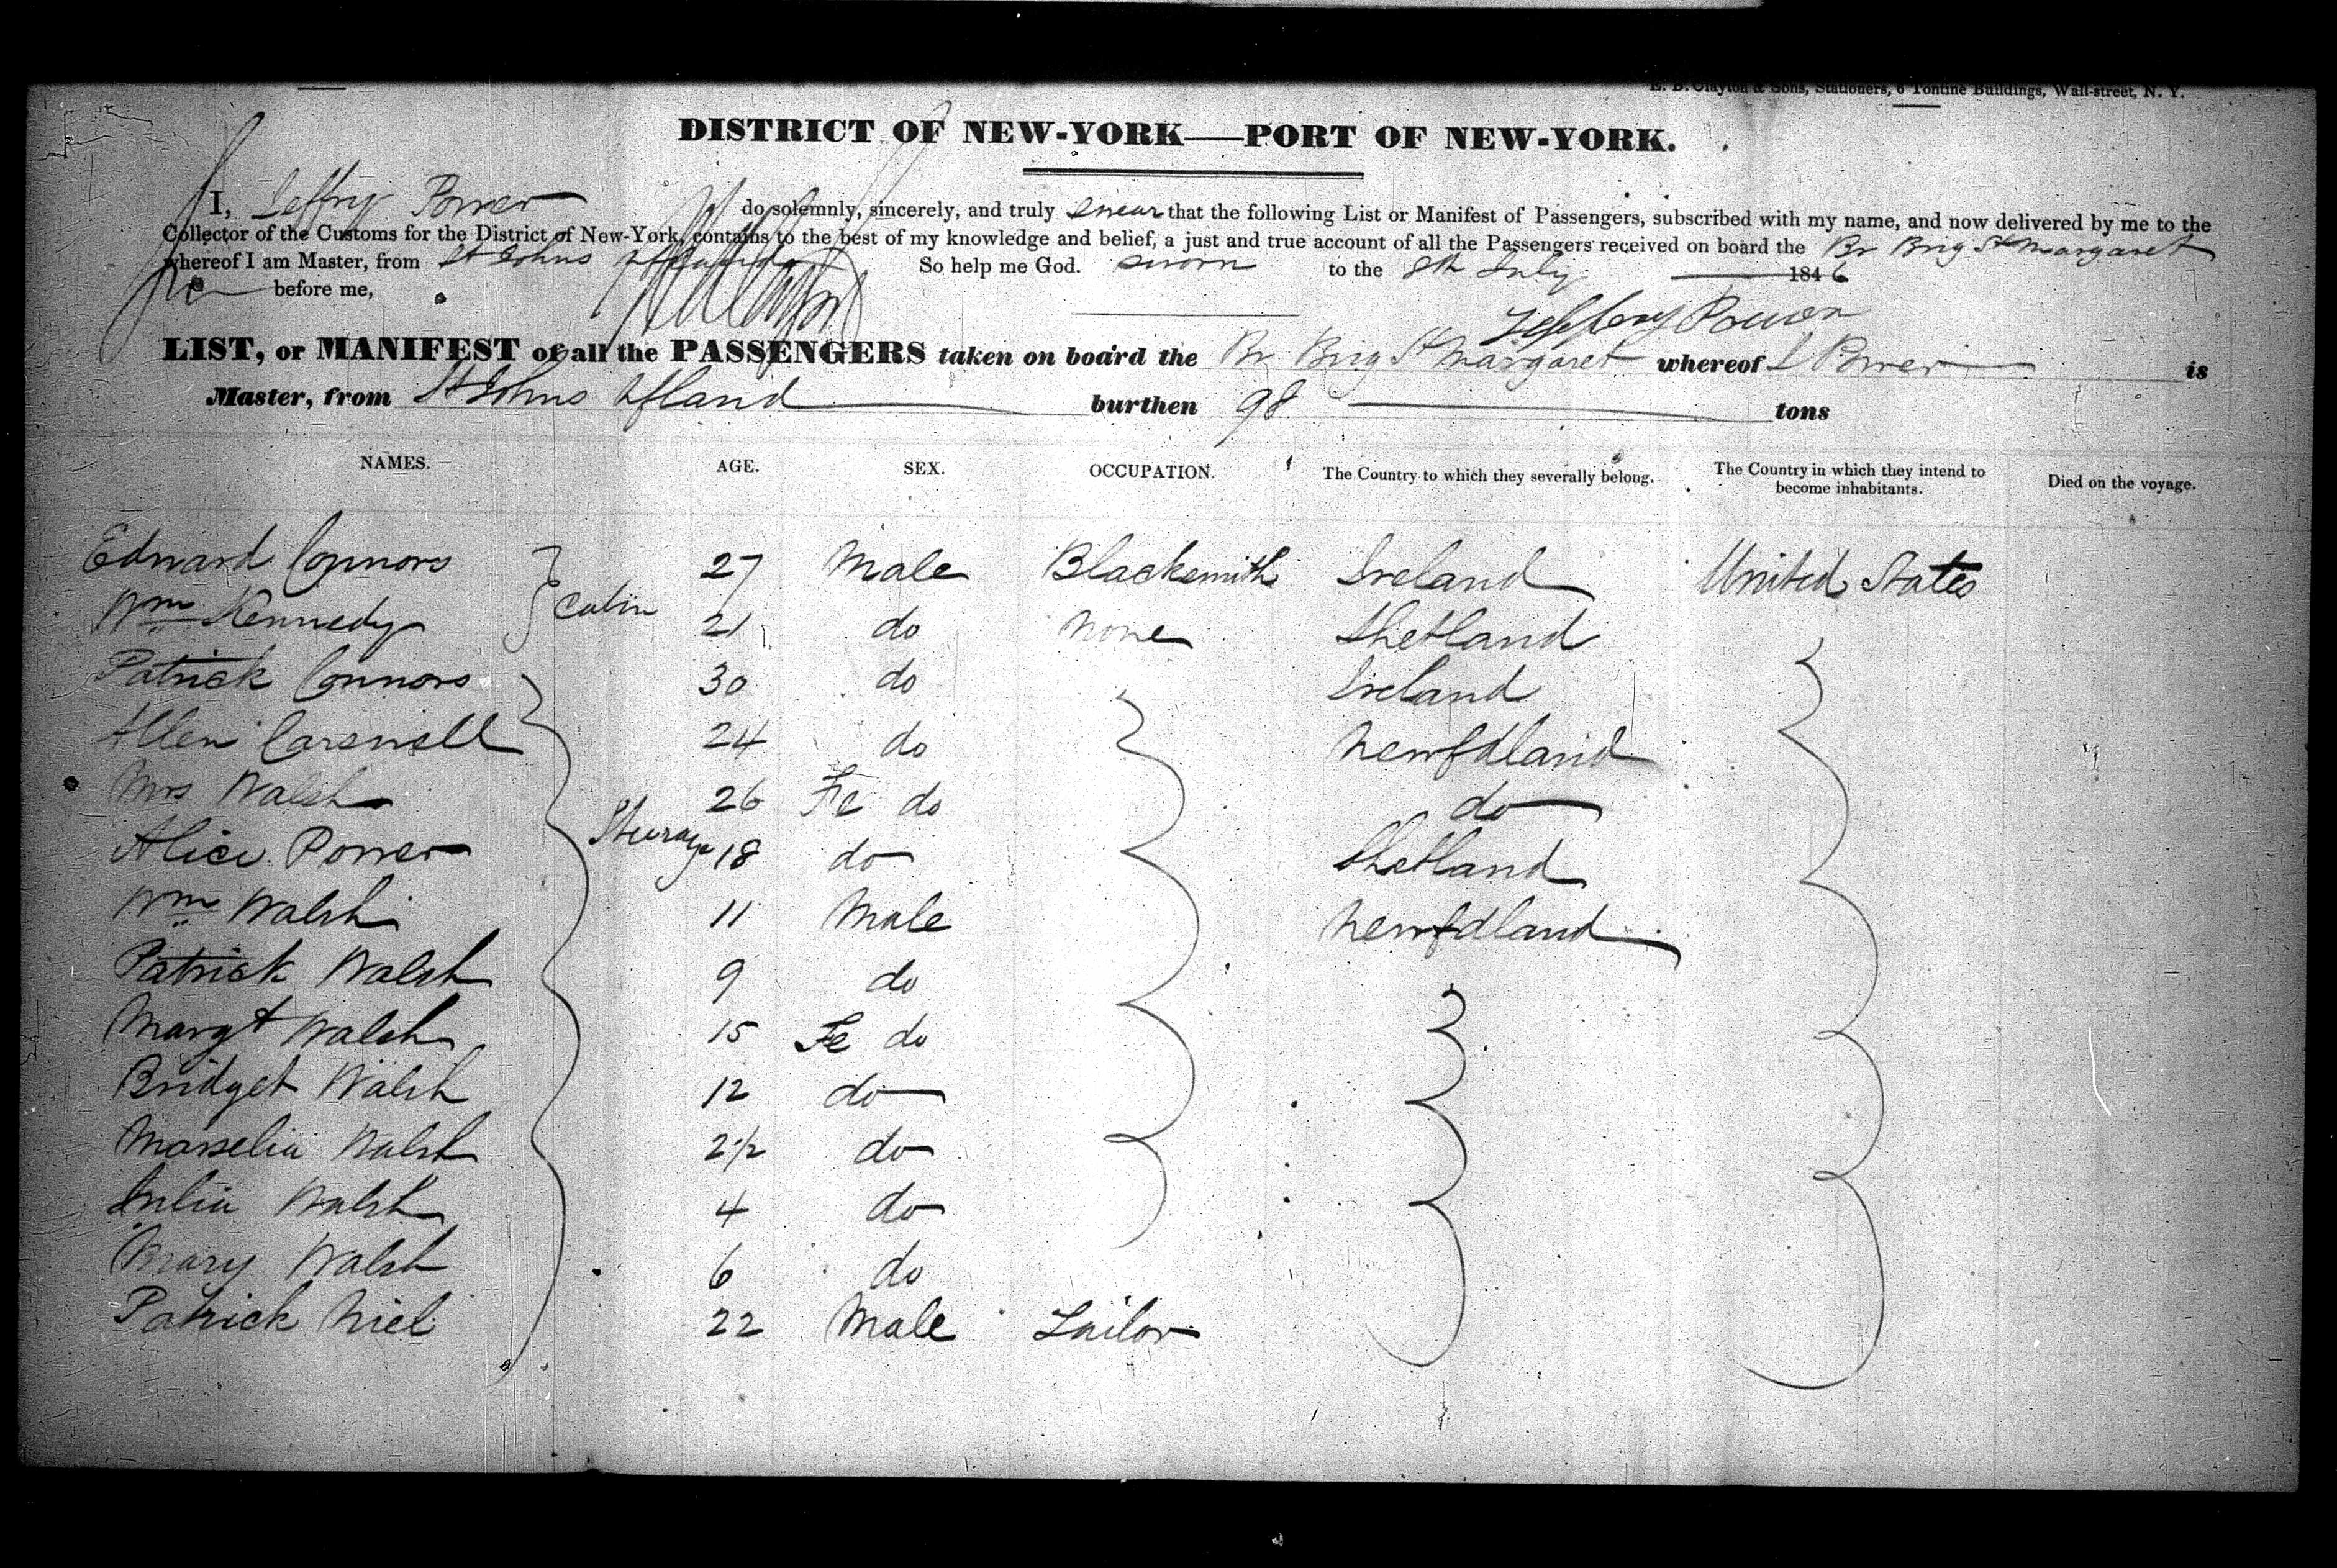 E. B. Clayton & Sons, Stationers, 6 Tontine Buildings, Wall-street, N. Y.
DISTRICT OF NEW-YORK—PORT OF NEW-YORK.
I, Jeffry Power do solemnly, sincerely, and truly swear that the following List or Manifest of Passengers, subscribed with my name, and now delivered by me to the
Collector of the Customs for the District of New-York, contains to the best of my knowledge and belief, a just and true account of all the Passengers received on board the Br Brig St Margaret
whereof I am Master, from St Johns So help me God.
sworn to the 8th July 1846
before me,
Jeffery Power
LIST, or MANIFEST of all the PASSENGERS taken on board the Br Brig St Margaret whereof J Power is
Master, from St Johns Nfland burthen 98 tons
NAMES. AGE. SEX. OCCUPATION. The Country to which they severally belong. The Country in which they intend to become inhabitants. Died on the voyage.
Edward Connors 27 Male Blacksmith Ireland United States
Wm Kennedy Cabin 21 do None Shetland
Patrick Connors 30 do Ireland
Allen Carswell 24 do Newfdland
Mrs Walsh 26 Fe do do
Alice Power Steerage 18 do Shetland
Wm Walsh 11 Male Newfdland
Patrick Walsh 9 do
Margt Walsh 15 Fe do
Bridget Walsh 12 do
Marselia Walsh 2 1/2 do
Julia Walsh 4 do
Mary Walsh 6 do
Patrick Niel 22 Male Tailor